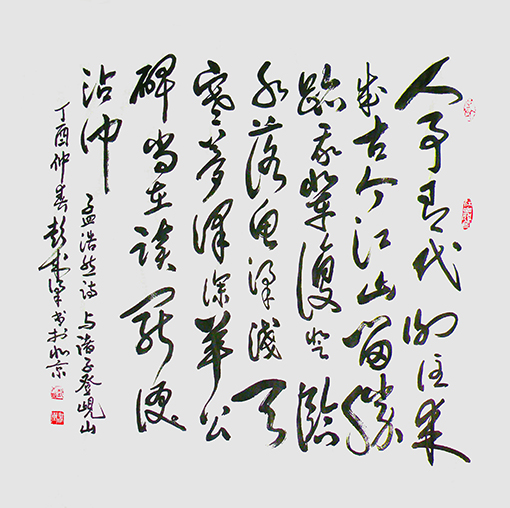 人事有代谢往来
成古今江山留胜
跡我辈復登臨
水落鱼梁浅天
寒梦泽深羊公
碑尚在读罢泪
沾巾
孟浩然诗与诸子登岘山
丁酉仲春彭书於北京